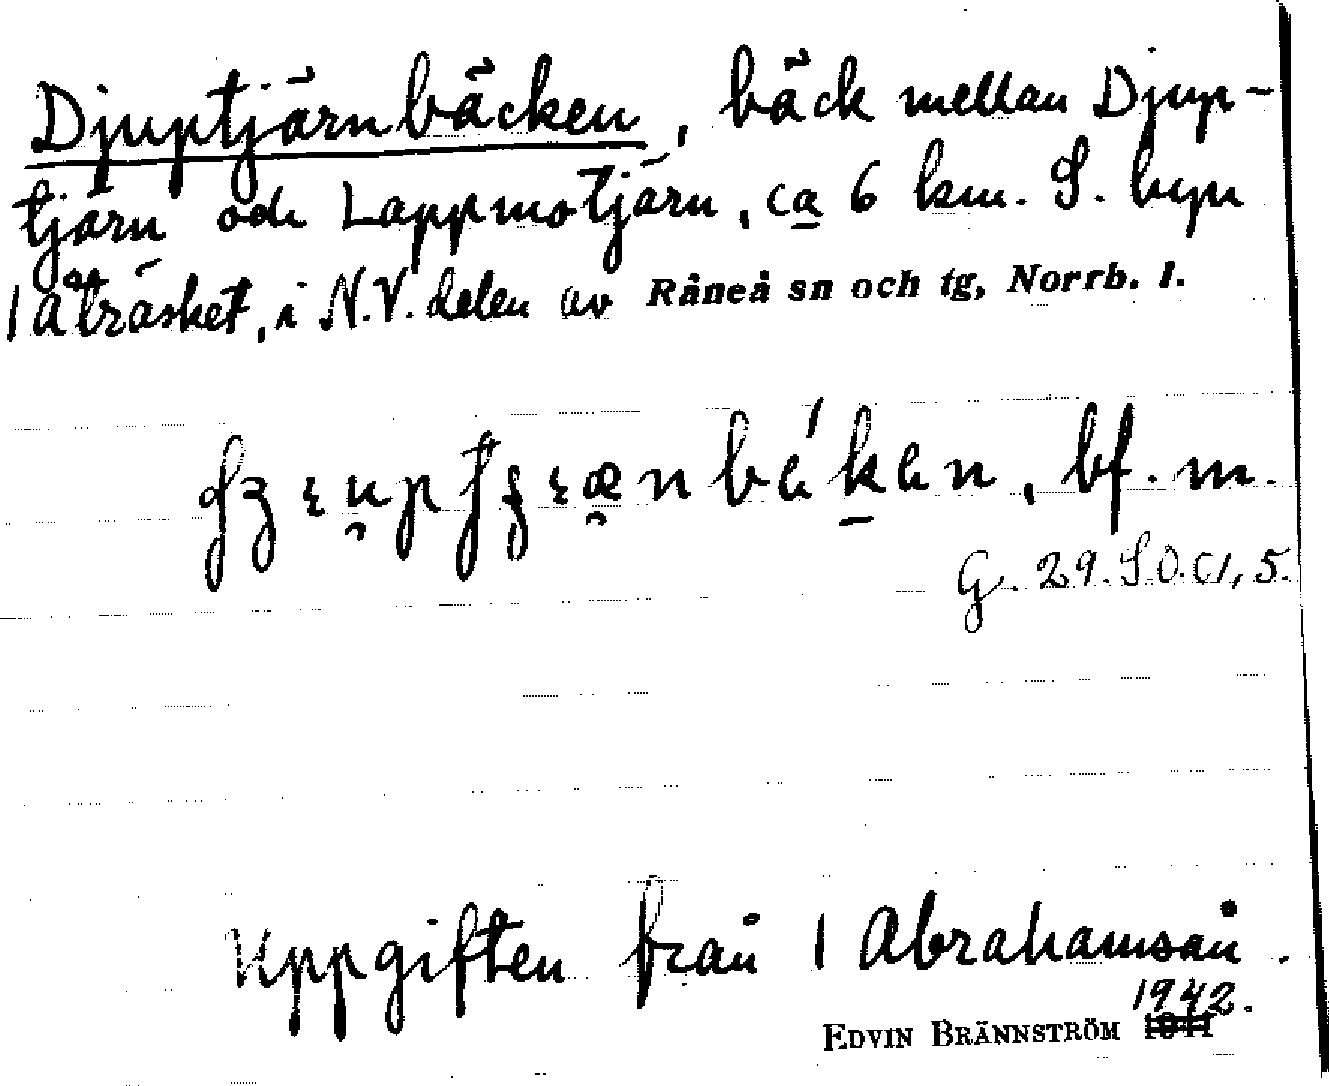 Djuptjärnbäcken, bäck mellan Djup-
tjärn och Lappmotjärn, ca 6 km. S. byn
Åträsket, i N.V. delen av Råneå sn och tg, Norrb. l.
bf. m.
G. 29. S.O. CI, 5.
Uppgiften från I Abrahamsån.
1942.
EDVIN BRÄNNSTRÖM 1941